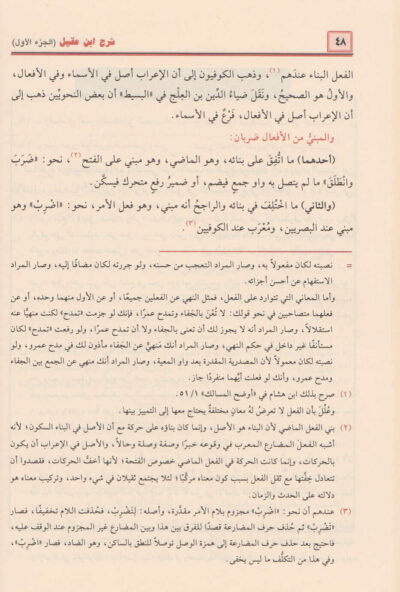 ٤٨
شرح ابن عقيل (الجزء الأول)
الفعل البناء عندَهم(١)، وذهب الكوفيون إلى أن الإعراب أصل في الأسماء وفي الأفعال،
والأول هو الصحيحُ، ونَقَلَ ضياءُ الدِّين بن العِلْج في «البسيط» أن بعض النحويِّين ذهب إلى
أن الإعراب أصلٌ في الأفعال، فَرْعٌ في الأسماء.
والمبنيُّ من الأفعال ضربان:
(أحدهما) ما اتُّفِقَ على بنائه، وهو الماضي، وهو مبني على الفتح(٢)، نحو: «ضَرَبَ
وانْطَلَقَ» ما لم يتصل به واو جمعٍ فيضم، أو ضميرُ رفعٍ متحرك فيسكَّن.
(والثاني) ما اخْتُلِفَ في بنائه والراجحُ أنه مبني، وهو فعل الأمر، نحو: «اضْرِبْ» وهو
مبني عند البصريين، ومُعْرَب عند الكوفيين(٣).
= نصبته لكان مفعولًا به، وصار المراد التعجب من حسنه، ولو جررته لكان مضافًا إليه، وصار المراد
الاستفهام عن أحسن أجزائه.
وأما المعاني التي تتوارد على الفعل، فمثل النهي عن الفعلين جميعًا، أو عن الأول منهما وحده، أو عن
فعلهما متصاحبين في نحو قولك: لا تُعْنَ بالجَفاء وتمدح عمرًا، فإنك لو جزمت «تمدح» لكنت منهيًّا عنه
استقلالًا، وصار المراد أنه لا يجوز لك أن تعنى بالجفاء ولا أن تمدح عمرًا، ولو رفعت «تمدح» لكان
مستأنفًا غير داخل في حكم النهي، وصار المراد أنك مَنهيٌّ عن الجَفاء مأذون لك في مدح عمرو، ولو
نصبته لكان معمولًا لأن المصدرية المقدرة بعد واو المعية، وصار المراد أنك منهي عن الجمع بين الجفاء
ومدح عمرو، وأنك لو فعلت أيَّهما منفردًا جاز.
(١) صرح بذلك ابن هشام في «أوضح المسالك» ٥١/١
وعُلِّلَ بأن الفعل لا تعرضُ لهُ معانٍ مختلفةٌ يحتاج معها إلى التمييز بينها.
(٢) بني الفعل الماضي لأن البناء هو الأصل، وإنما كان بناؤه على حركة مع أن الأصل في البناء السكون؛ لأنه
أشبه الفعلَ المضارعَ المعرب في وقوعه خبرًا وصفة وصلة وحالًا، والأصل في الإعراب أن يكون
بالحركات، وإنما كانت الحركة في الفعل الماضي خصوص الفتحة؛ لأنها أخفُّ الحركات، فقصدوا أن
تتعادل خفَّتها مع ثقل الفعل بسبب كون معناه مركَّبًا؛ لئلا يجتمع ثقيلان في شيء واحد، وتركيب معناه هو
دلالته على الحدث والزمان.
(٣) عندهم أن نحو: «اضْرِبْ» مجزوم بلام الأمر مقدَّرة، وأصله: لِتَضْرِبْ، فحُذفت اللام تخفيفًا، فصار
«تَضْرِبْ» ثم حُذف حرف المضارعة قصدًا للفرق بين هذا وبين المضارع غير المجزوم عند الوقف عليه،
فاحتيج بعد حذف حرف المضارعة إلى همزة الوصل توصلًا للنطق بالساكن، وهو الضاد، فصار «اضْرِبْ»،
وفي هذا من التكلُّف ما ليس يخفى.